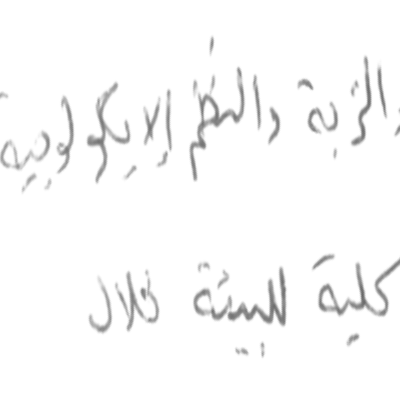 والتربة والنظم الايكولوجية
كلية للبيئة خلال